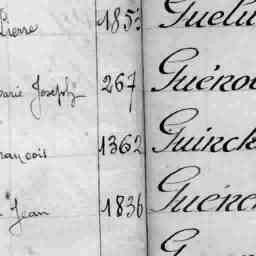 Pierre 1853 Guelu
Marie Joseph 267 Guéro
François 1362 Guinck
Jean 1836 Guéren